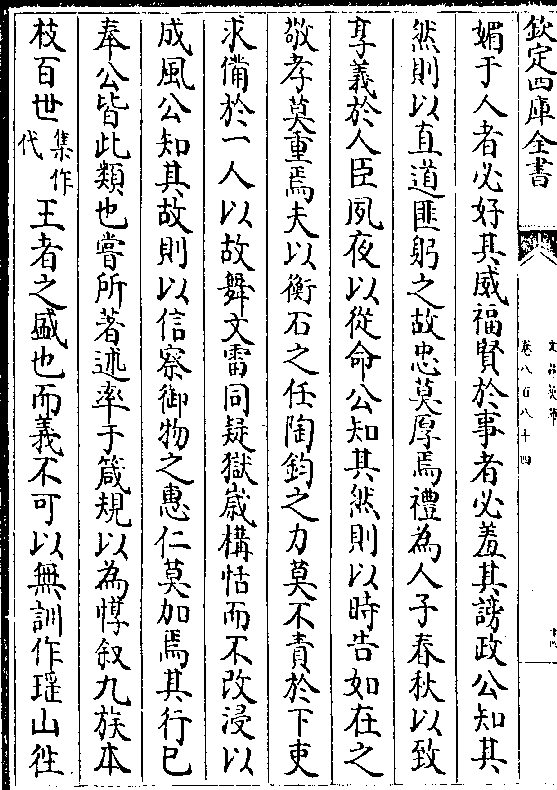 欽定四庫全書
文苑英華
卷八百八十四
十四
媚于人者必好其威福賢於事者必羞其謗政公知其
然則以直道匪躬之故忠莫厚焉禮為人子春秋以致
享義於人臣夙夜以從命公知其然則以時告如在之
敬孝莫重焉夫以衡石之任陶鈞之力莫不責於下吏
求備於一人以故舞文雷同疑獄嵗構怙而不改浸以
成風公知其故則以信察御物之惠仁莫加焉其行已
奉公皆此類也嘗所著述率于箴規以為惇叙九族本
枝百世集作代王者之盛也而義不可以無訓作瑶山徃